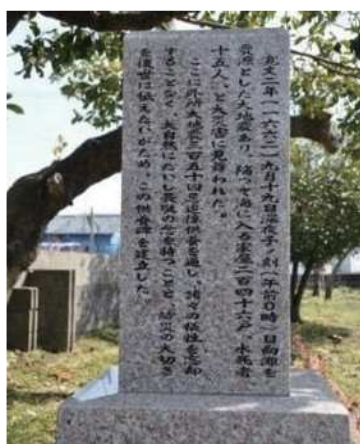 寛文二年(一六六二)九月十九日深夜子ノ刻(午前0時)日向灘を
震源とした大地震あり、陥て海に入る家屋二百四十六戸、水死者、
十五人、と大災害に見舞われた。
ここに外所大地震三百五十回忌追悼供養を通し、諸々の犠牲を忘却
することなく、大自然にたいし畏敬の念を持つことと、防災の大切さ
を後世に伝えんがため、この供養碑を建立した。